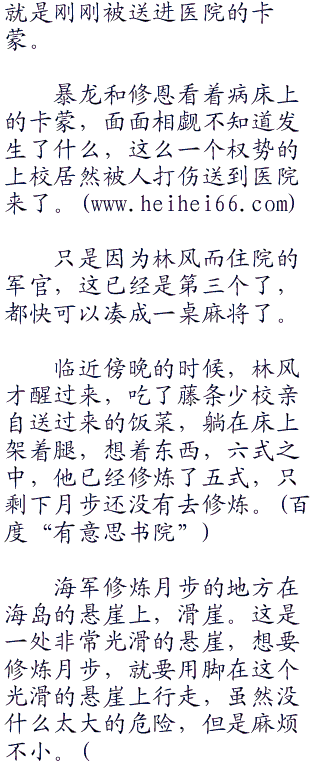 就是刚刚被送进医院的卡
蒙。
暴龙和修恩看着病床上
的卡蒙，面面相觑不知道发
生了什么，这么一个权势的
上校居然被人打伤送到医院
来了。(www.heihei66.com)
只是因为林风而住院的
军官，这已经是第三个了，
都快可以凑成一桌麻将了。
临近傍晚的时候，林风
才醒过来，吃了藤条少校亲
自送过来的饭菜，躺在床上
架着腿，想着东西，六式之
中，他已经修炼了五式，只
剩下月步还没有去修炼。(百
度“有意思书院”)
海军修炼月步的地方在
海岛的悬崖上，滑崖。这是
一处非常光滑的悬崖，想要
修炼月步，就要用脚在这个
光滑的悬崖上行走，虽然没
什么太大的危险，但是麻烦
不小。(